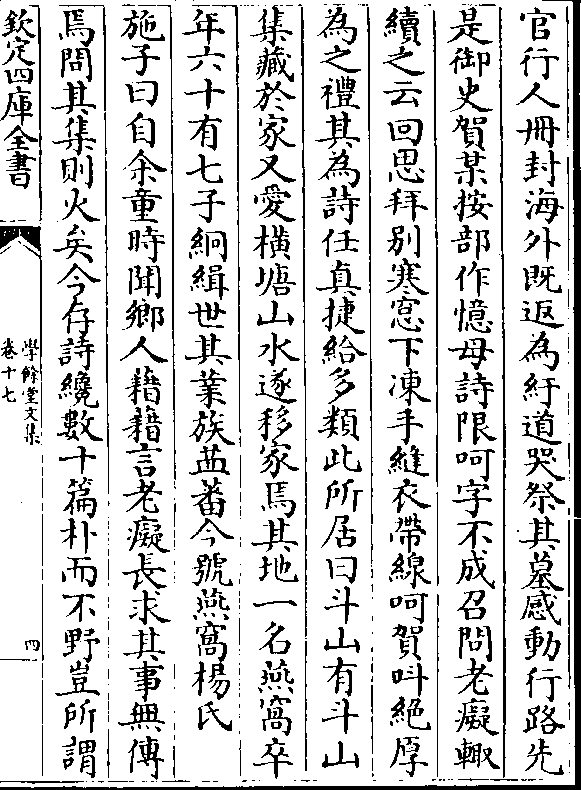 官行人冊封海外既返為紆道哭祭其墓感動行路先
是御史賀某按部作憶母詩限呵字不成召問老癡輙
續之云回思拜别寒窓下凍手縫衣帶線呵賀呌絕厚
為之禮其為詩任真捷給多類此所居曰斗山有斗山
集藏於家又愛橫塘山水遂移家焉其地一名燕窩卒
年六十有七子絅緝世其業族益蕃今號燕窩楊氏
施子曰自余童時聞鄉人藉藉言老癡長求其事無傳
焉問其集則火矣今存詩纔數十篇朴而不野豈所謂
欽定四庫全書
學餘堂文集
卷十七
四